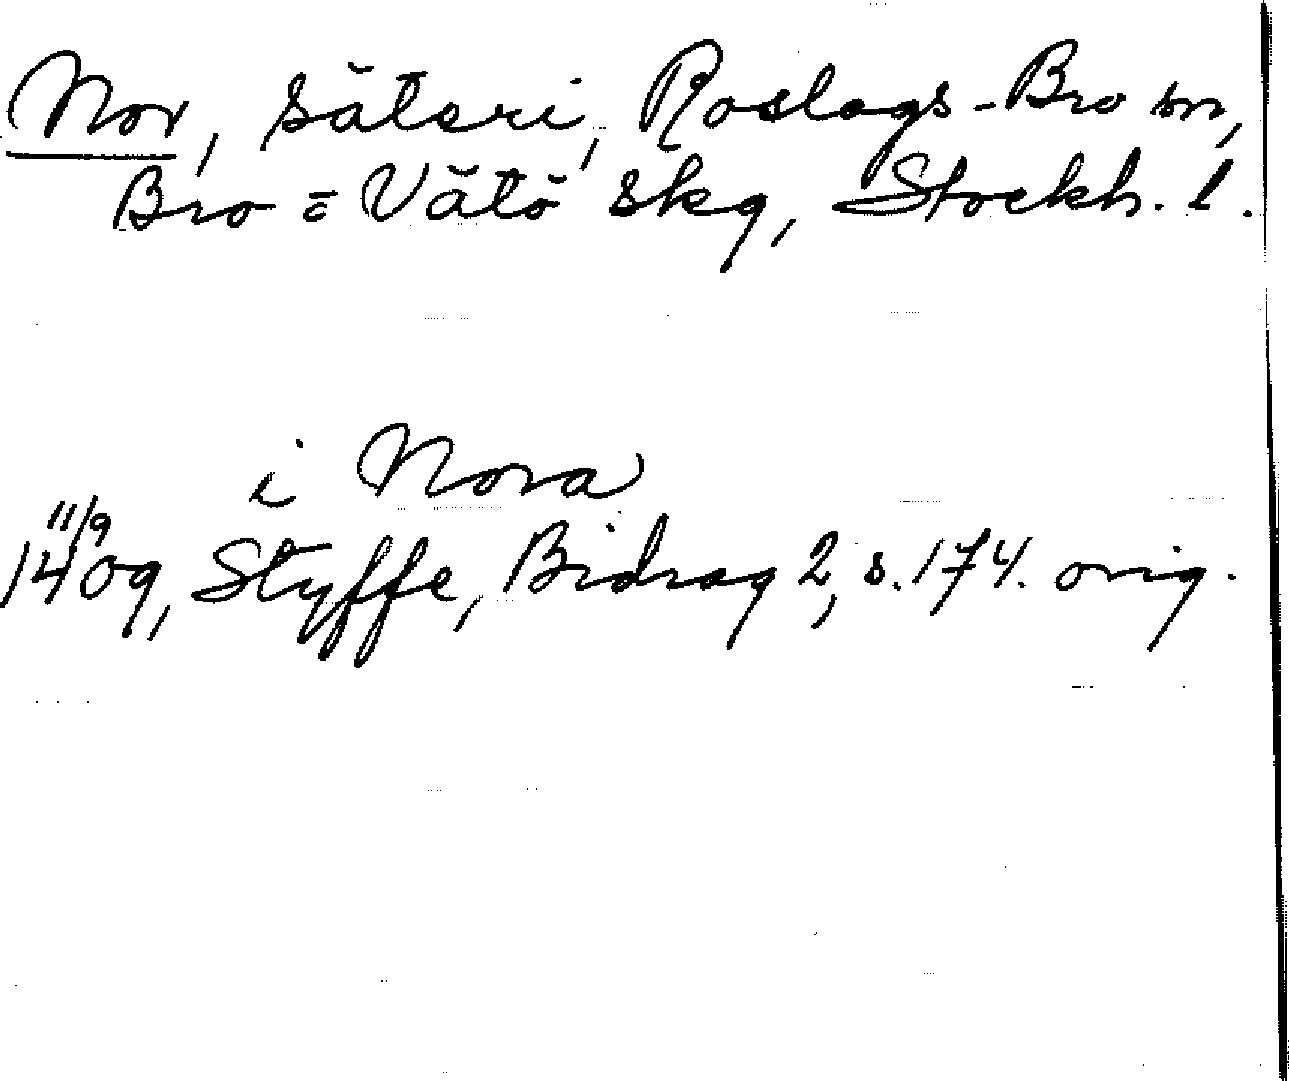 Nor, säteri, Roslags-Bro sn,
Bro o Vätö skg, Stockh. l.
i Nora
11/9
1409, Styffe, Bidrag 2, s. 174. orig.